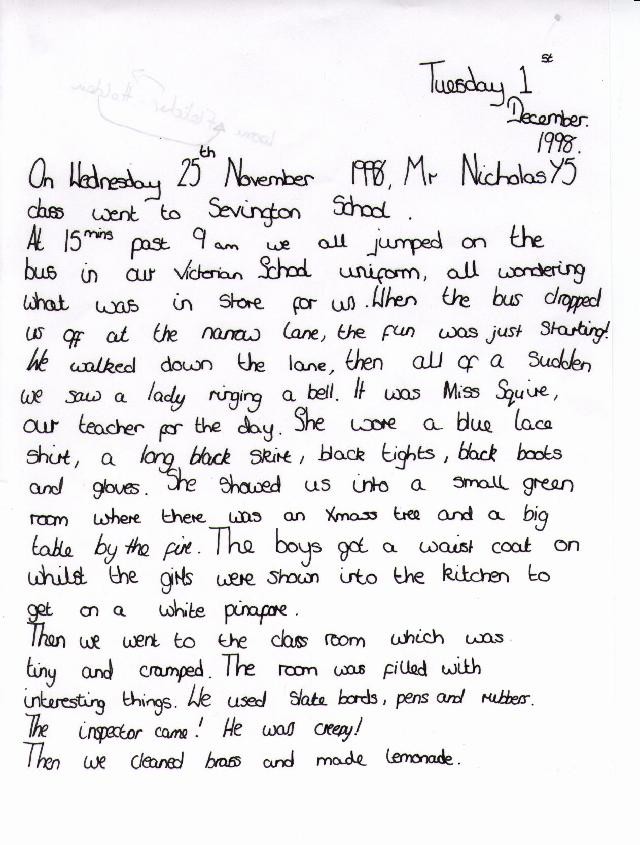 Tuesday 1st
December.
1998.
On Wednesday 25th November 1998, Mr Nicholas Y5
class went to Sevington School.
At 15mins past 9 am we all jumped on the
bus in our Victorian School uniform, all wondering
what was in store for us. When the bus dropped
us off at the narrow lane, the fun was just starting!
We walked down the lane, then all of a sudden
we saw a lady ringing a bell. It was Miss Squire,
our teacher for the day. She wore a blue lace
shirt, a long black skirt, black tights, black boots
and gloves. She showed us into a small green
room where there was an Xmass tree and a big
table by the fire. The boys got a waist coat on
whilst the girls were shown into the kitchen to
get on a white pinapore.
Then we went to the class room which was
tiny and cramped. The room was filled with
interesting things. We used slate bords, pens and rubbers.
The inspector came! He was creepy!
Then we cleaned brass and made lemonade.